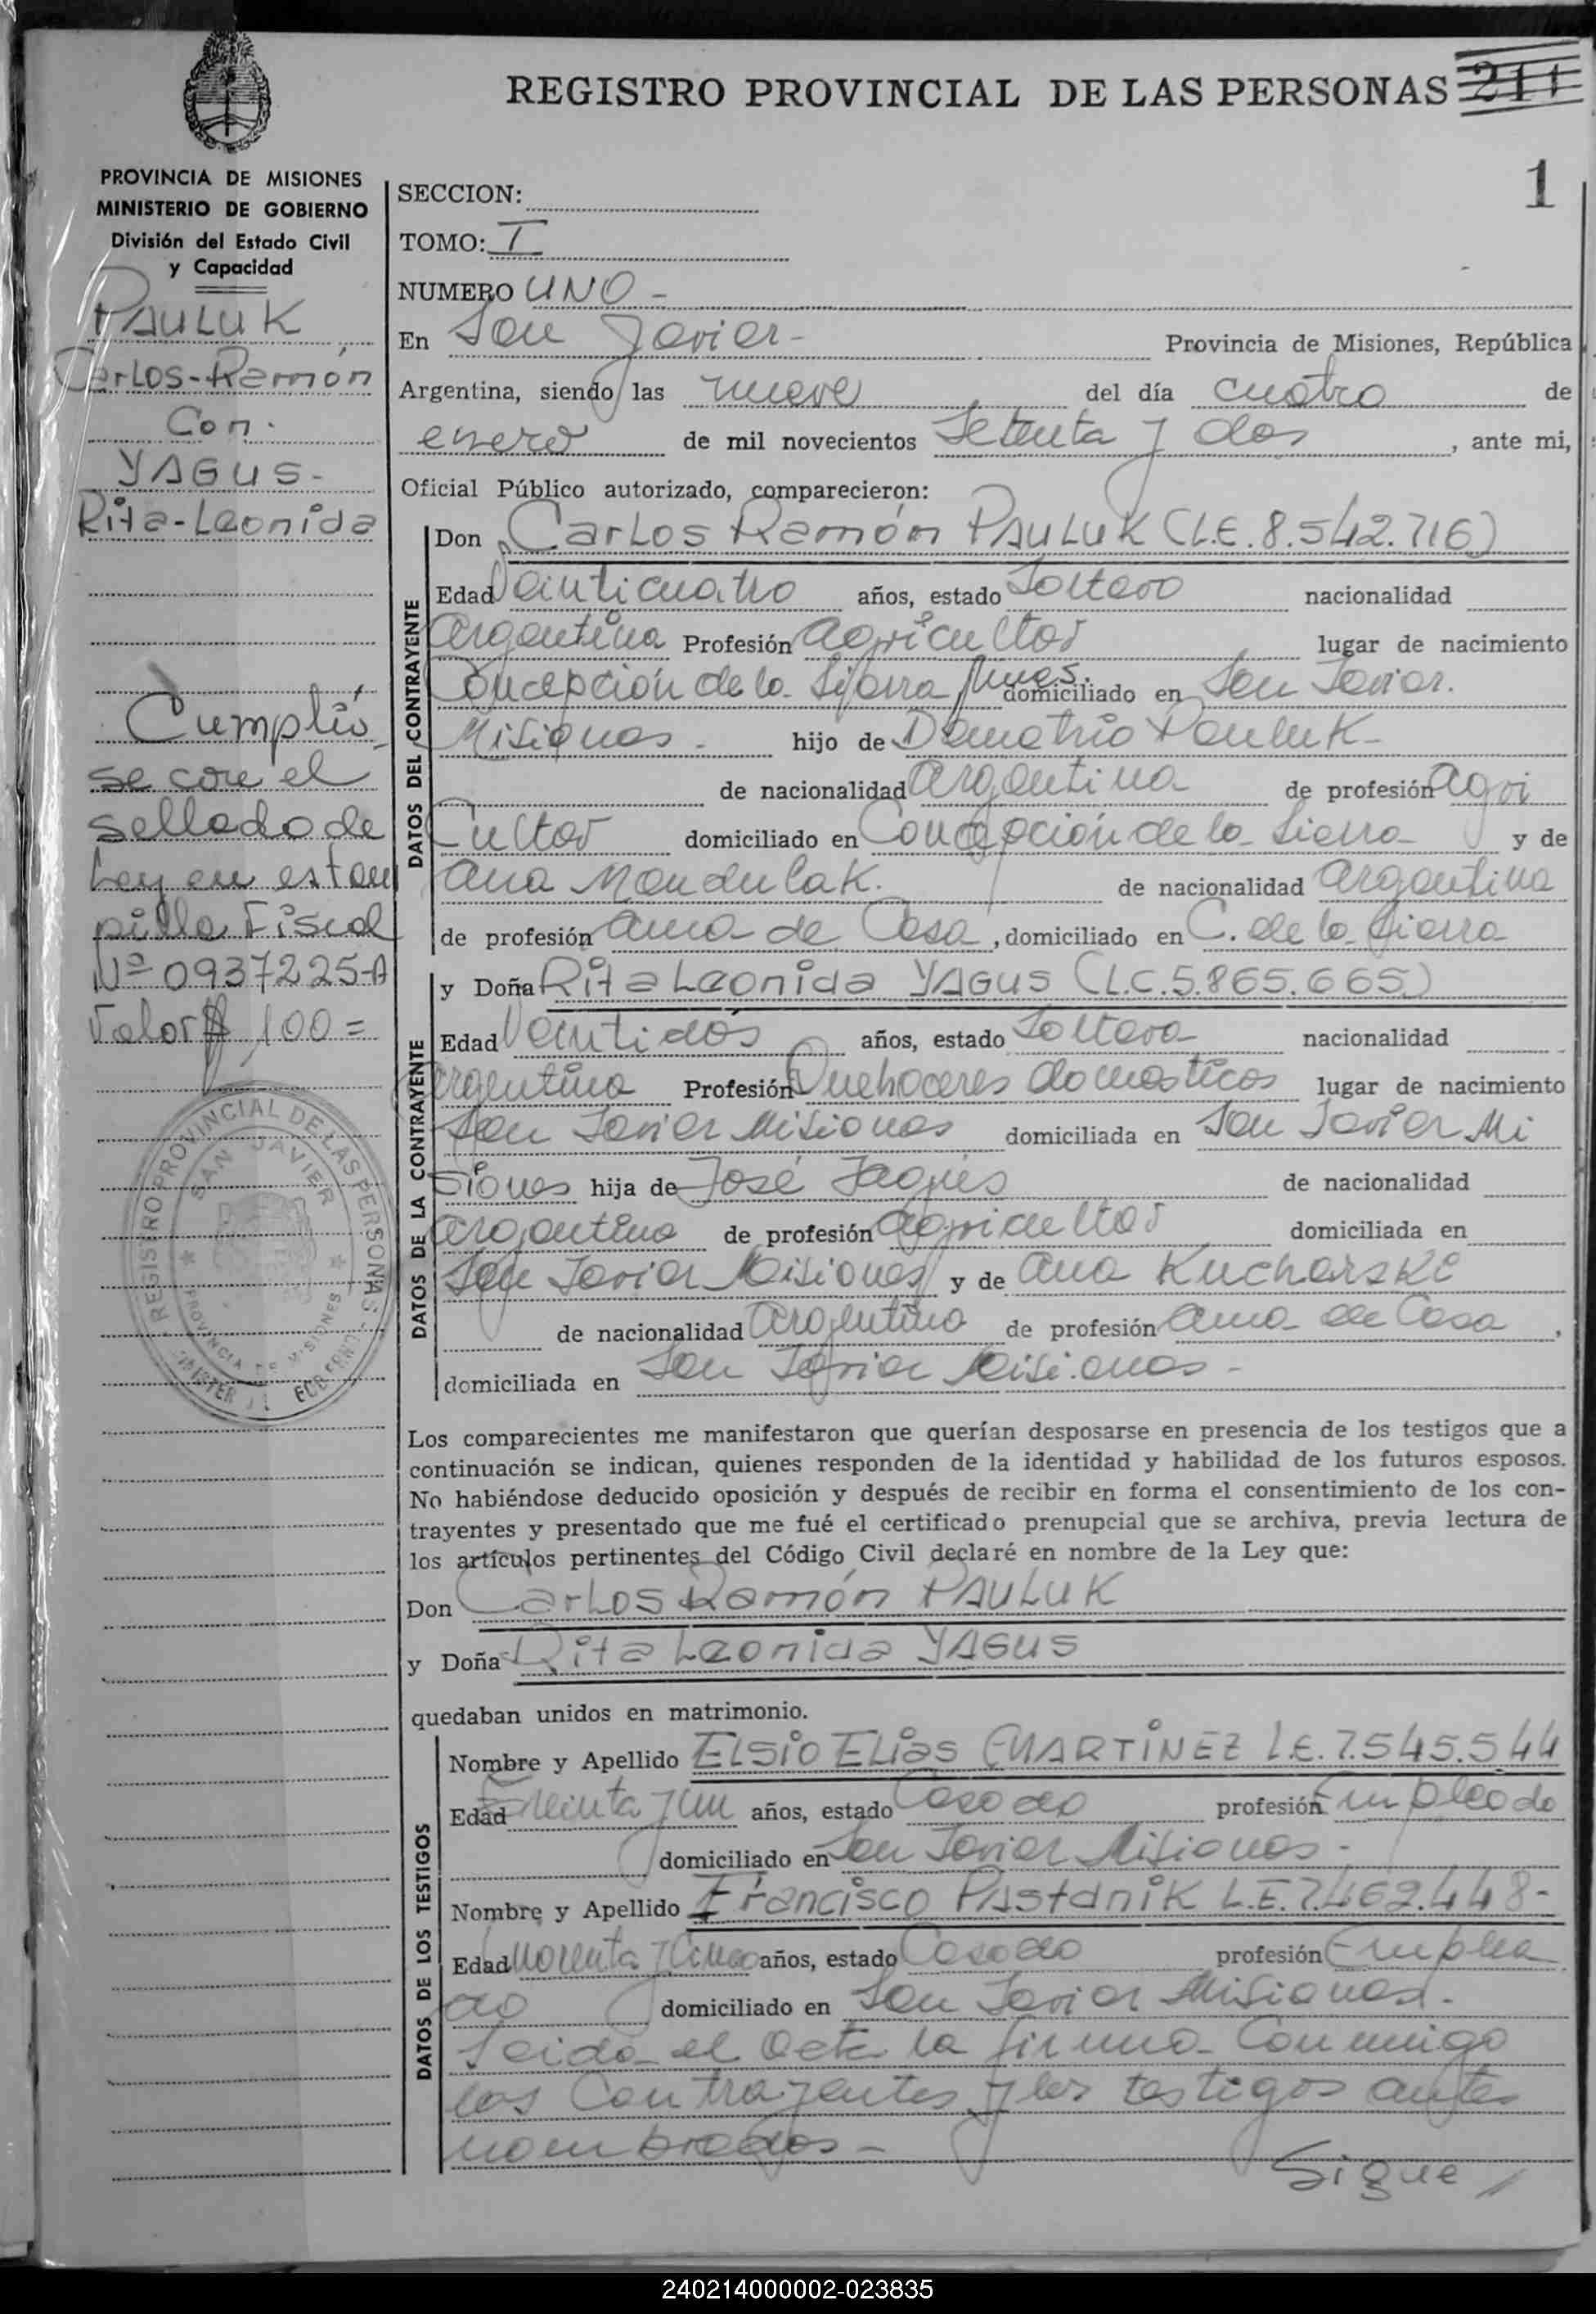 REGISTRO PROVINCIAL DE LAS PERSONAS 211
1
PROVINCIA DE MISIONES
MINISTERIO DE GOBIERNO
División del Estado Civil
y Capacidad
PAULUK
Carlos-Ramón
Con.
YAGUS-
Rita-Leonida
Cumplió
se con el
sellado de
Ley en estam
pilla Fiscal
Nº 0937225-A
Valor $ 100=
REGISTRO PROVINCIAL DE LAS PERSONAS
SAN JAVIER
PROVINCIA DE MISIONES
SECCION:
TOMO: I
NUMERO UNO -
En San Javier- Provincia de Misiones, República
Argentina, siendo las nueve del día cuatro de
enero de mil novecientos Setenta y dos, ante mi,
Oficial Público autorizado, comparecieron:
DATOS DEL CONTRAYENTE
Don Carlos Ramón PAULUK (L.E. 8.542.716)
Edad Veinticuatro años, estado Soltero nacionalidad
argentina Profesión agricultor lugar de nacimiento
Concepción de la Sierra Mnes. domiciliado en San Javier.
Misiones. hijo de Demetrio Pauluk-
de nacionalidad argentina de profesión agri
cultor domiciliado en Concepción de la Sierra y de
Ana Mandulak. de nacionalidad argentina
de profesión ama de Casa, domiciliado en C. de la Sierra
DATOS DE LA CONTRAYENTE
y Doña Rita Leonida YAGUS (L.C. 5.865.665)
Edad Veintidos años, estado Soltera nacionalidad
argentina Profesión Quehaceres domesticos lugar de nacimiento
San Javier Misiones domiciliada en San Javier Mi
siones hija de José Jagus de nacionalidad
argentina de profesión agricultor domiciliada en
San Javier Misiones y de Ana Kucharski
de nacionalidad argentina de profesión ama de Casa,
domiciliada en San Javier Misiones-
Los comparecientes me manifestaron que querían desposarse en presencia de los testigos que a
continuación se indican, quienes responden de la identidad y habilidad de los futuros esposos.
No habiéndose deducido oposición y después de recibir en forma el consentimiento de los con-
trayentes y presentado que me fué el certificado prenupcial que se archiva, previa lectura de
los artículos pertinentes del Código Civil declaré en nombre de la Ley que:
Don Carlos Ramón PAULUK
y Doña Rita Leonida YAGUS
quedaban unidos en matrimonio.
DATOS DE LOS TESTIGOS
Nombre y Apellido Elsio Elias MARTINEZ L.E. 7.545.544
Edad Treinta y un años, estado Casado profesión Empleado
domiciliado en San Javier Misiones-
Nombre y Apellido Francisco Pastanik L.E. 7.462.448-
Edad y Cinco años, estado Casado profesión Emplea
do domiciliado en San Javier Misiones.
Leida el acta la firma Conmigo
los Contrayentes y los testigos antes
nombrados-
Sigue/
240214000002-023835